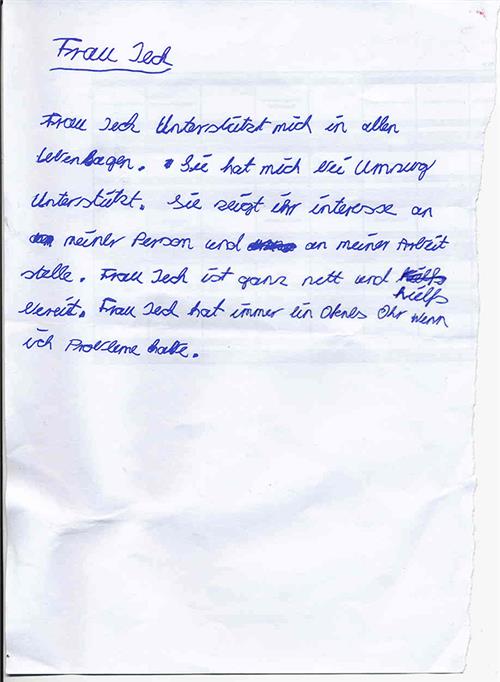 Frau Jech
Frau Jech Unterstützt mich in allen
Lebenslagen. Sie hat mich bei Umzug
Unterstützt. Sie zeigt ihr interesse an
meiner Person und an meiner Arbeit
stelle. Frau Jech ist ganz nett und
hielfs
bereit. Frau Jech hat immer ein Ofenes Ohr wenn
ich Probleme hatte.